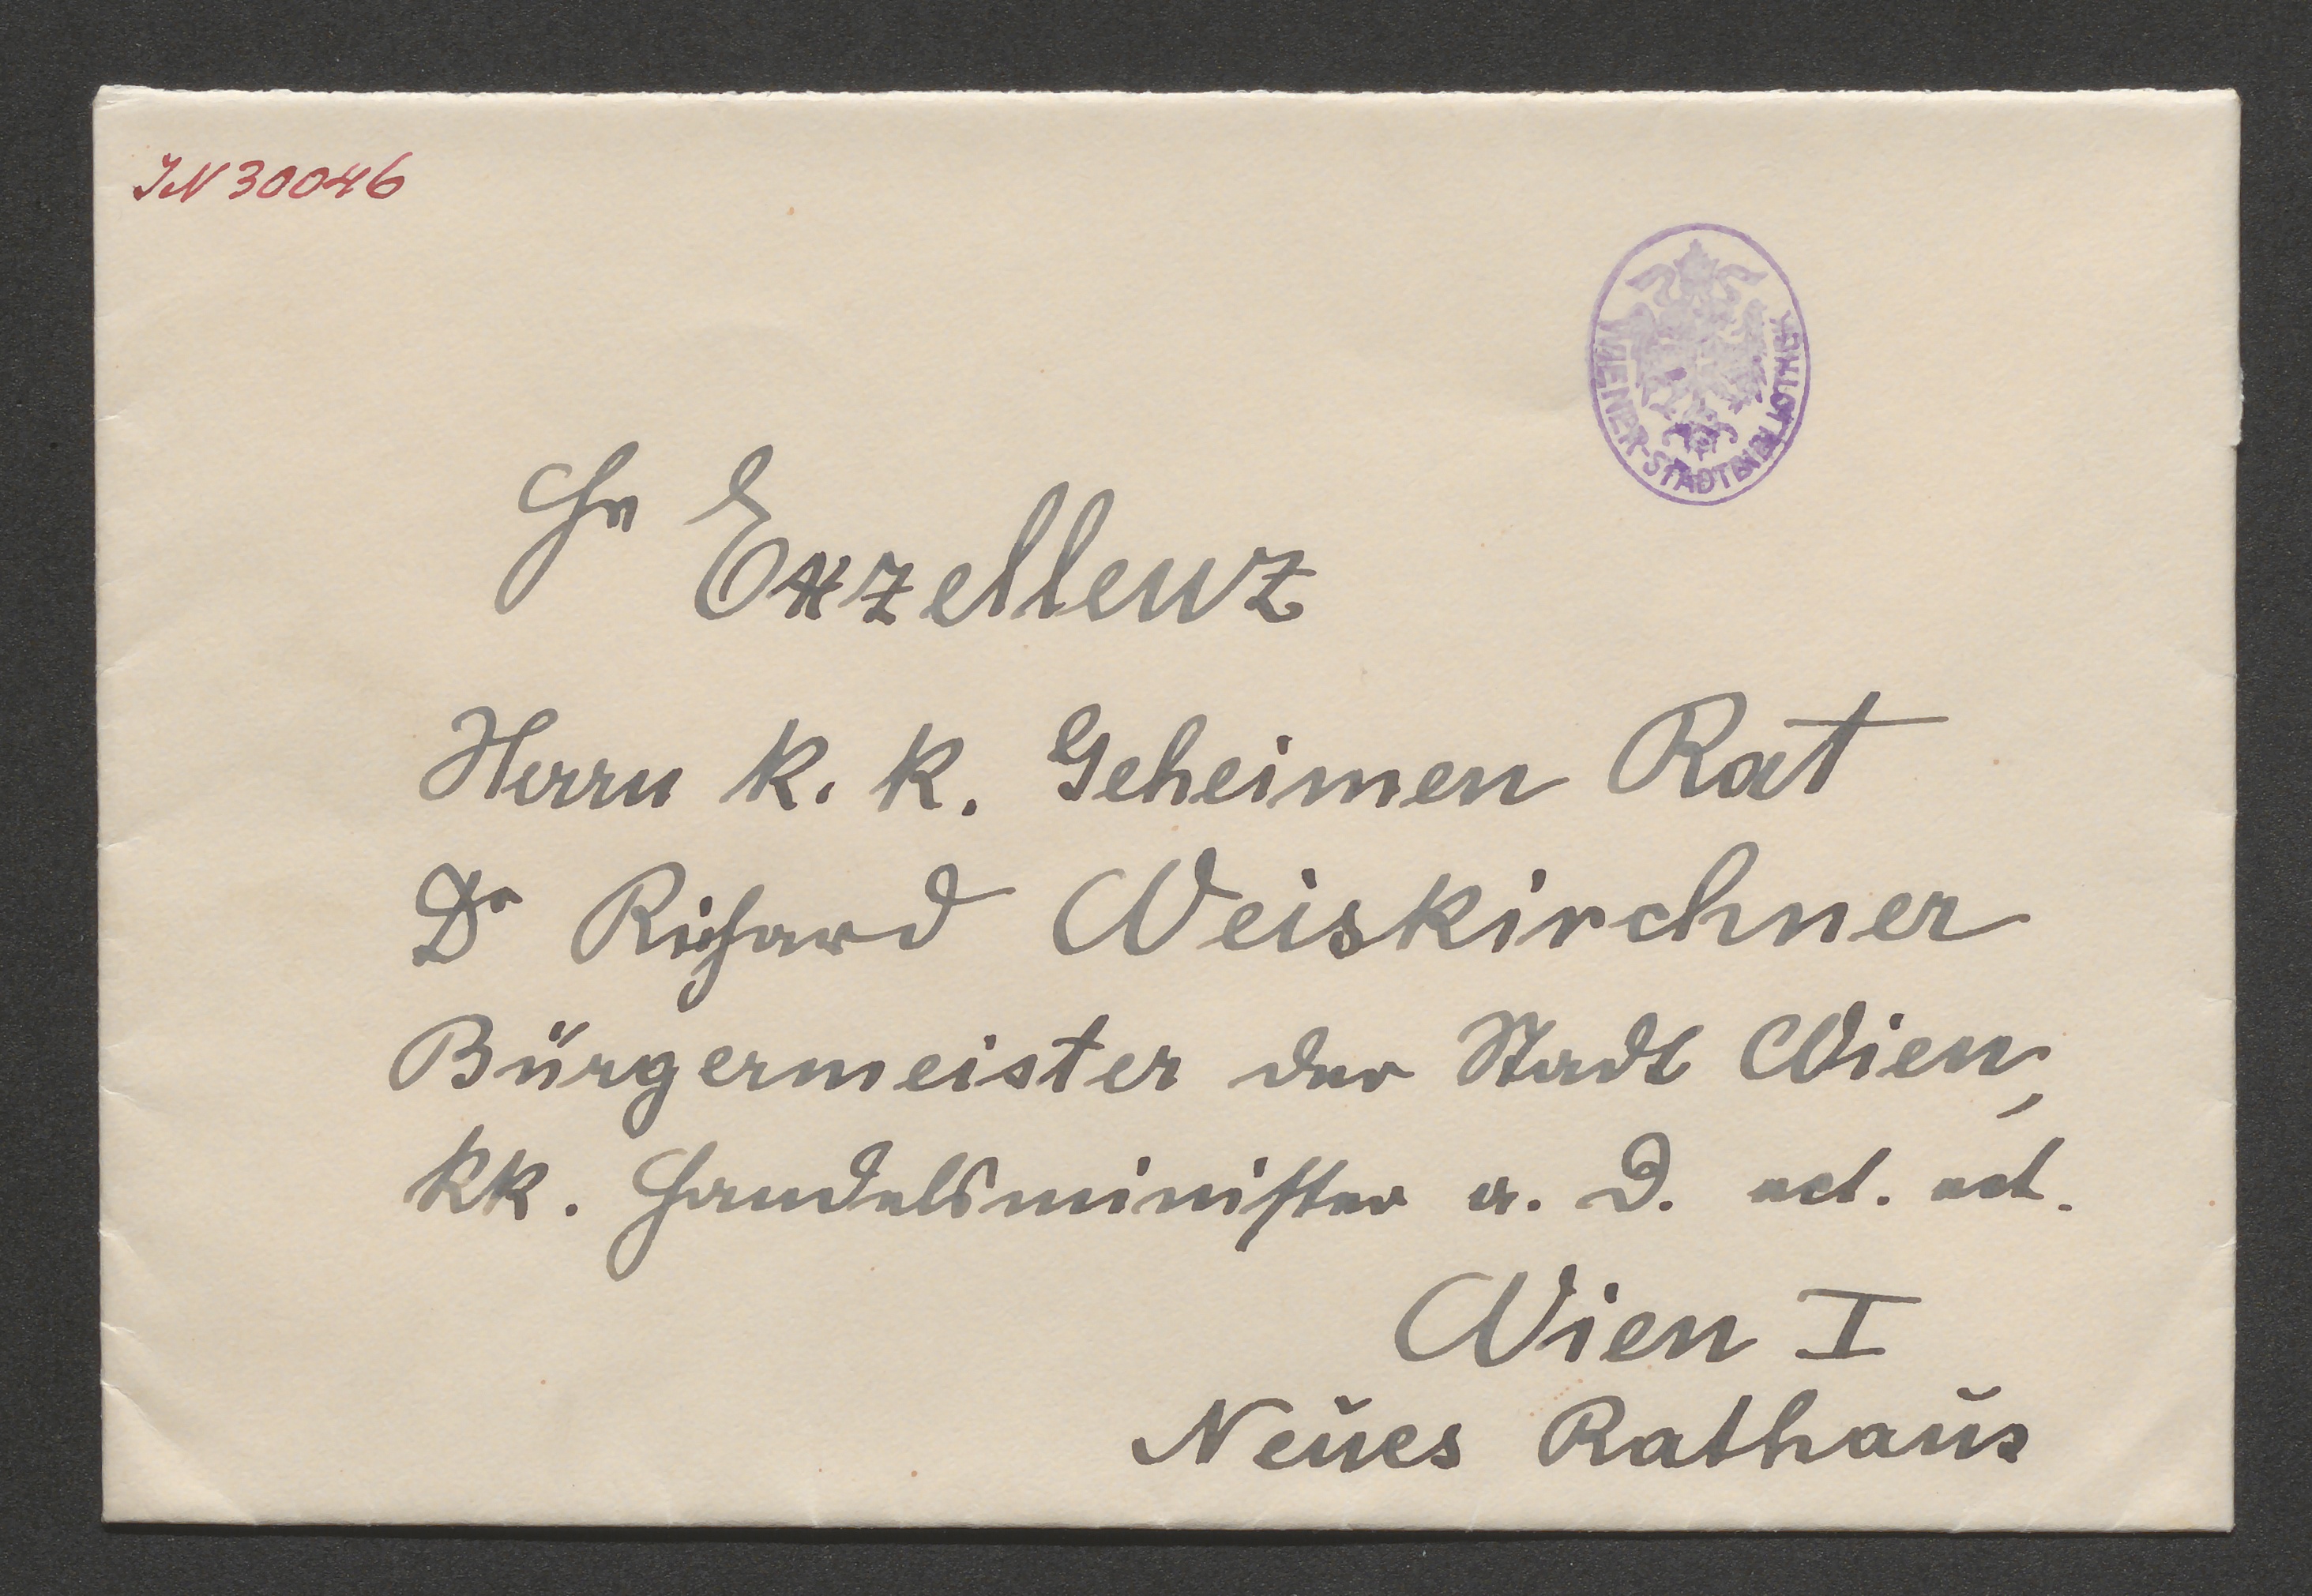 IN 30046
WIENER STADTBIBLIOTHEK
Sr Exzellenz
Herrn k. k. Geheimen Rat
Dr Richard Weiskirchner
Bürgermeister der Stadt Wien,
kk. Handelsminister a. D. ect. ect.
Wien I
Neues Rathaus